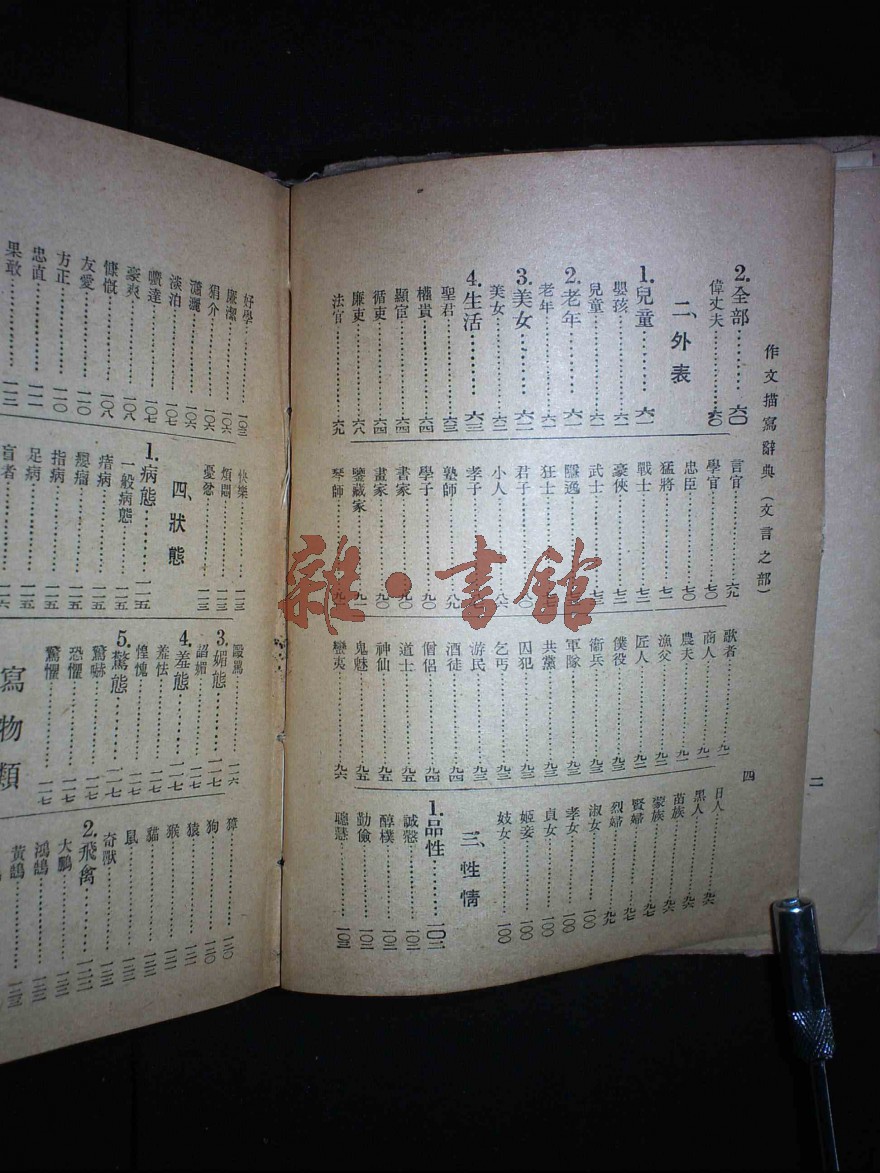 作文描寫辭典（文言之部）
四
2.全部………六〇
偉丈夫………六〇
二、外表
1.兒童………六一
嬰孩………六一
兒童………六一
2.老年………六一
老年………
3.美女………六二
美女………
4.生活………六三
聖君………六三
權貴………六四
顯宦………六四
循吏………六四
廉吏………六八
法官………六九
言官………六九
學官………七〇
忠臣………七〇
猛將………
戰士………
豪俠………
武士………
隱逸………
狂士………
君子………
小人………
孝子………
塾師………八九
學子………九〇
書家………九〇
畫家………九〇
鑒藏家………
琴師………
歌者………九一
商人………九一
農夫………九一
漁父………九二
匠人………
僕役………
衞兵………九三
軍隊………九三
共黨………九三
囚犯………九三
乞丐………九三
游民………九三
酒徒………九四
僧侶………九四
道士………九五
神仙………九五
鬼魅………九五
蠻夷………九六
日人………九六
黑人………九六
苗族………九六
蒙族………九七
賢婦………九七
烈婦………九九
淑女………一〇〇
孝女………一〇〇
貞女………一〇〇
姬妾………一〇〇
妓女………一〇〇
三、性情
1.品性………一〇二
誠慤………一〇二
醇樸………一〇二
勤儉………一〇二
聰慧………一〇三
好學………一〇三
廉潔………一〇六
狷介………一〇六
瀟灑………一〇六
淡泊………一〇七
曠達………一〇七
豪爽………一〇八
慷慨………一〇八
友愛………一一〇
方正………一一〇
忠直………一一一
果敢………一一三
快樂………一一三
煩悶………一一三
憂忿………一一三
四、狀態
1.病態………一一五
一般病態………一一五
瘖病………一一五
癭瘤………一一五
指病………一一五
足病………一一五
盲者………一一六
毆罵………一一六
3.媚態………一一七
諂媚………一一七
4.羞態………一一七
羞怯………一一七
惶愧………一一七
5.驚態………一一七
驚嚇………一一七
恐懼………一一七
驚懼………一一七
寫物類
獐………一二〇
狗………一二〇
猿………一二一
猴………一二一
貓………一二一
鼠………一二一
奇獸………一二一
2.飛禽………一二二
大鵬………一二二
鴻鵠………一二二
黃鶴………
二
雜·書館